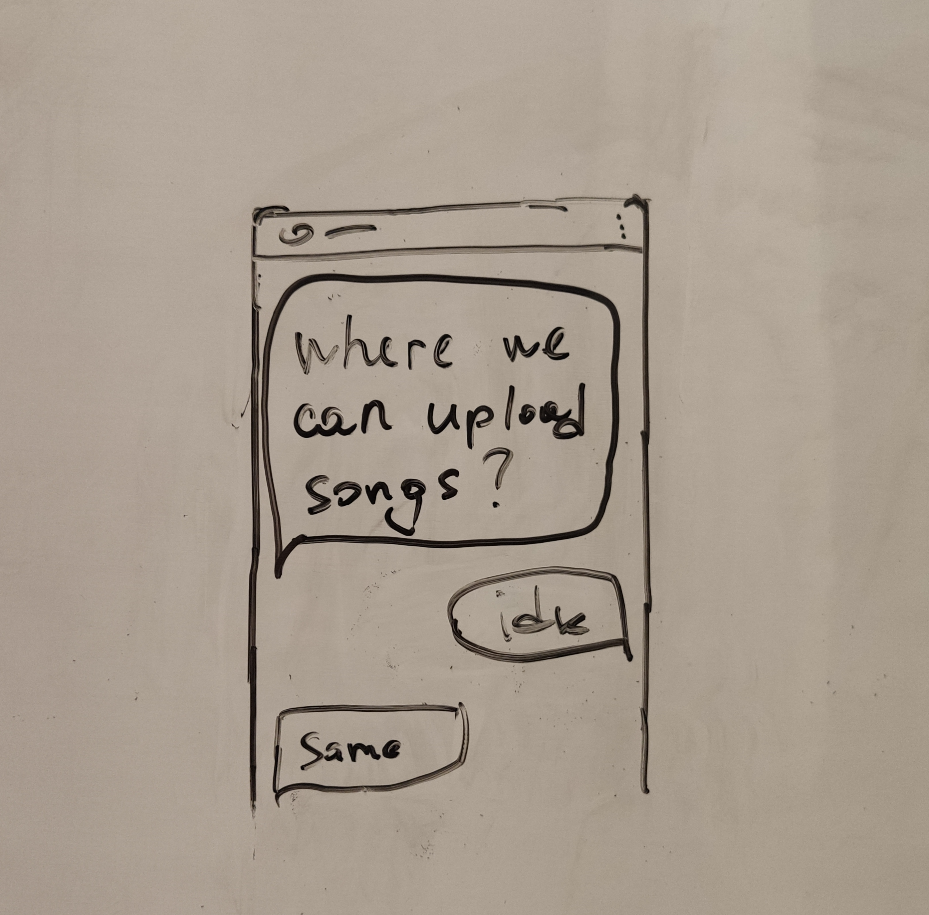 where we
can upload
songs?
idk
Same